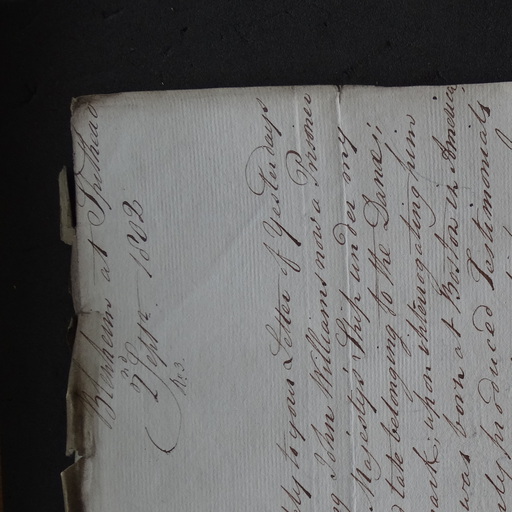 Blenheim at Spithead
2nd Septr. 1802
No 3.
to your Letter of Yesterdays
John Williams now a Prisoner
Majesty's Ship under my
late belonging to the Dana;
upon interrogating him
was born at Boston in America,
produced Testimonials